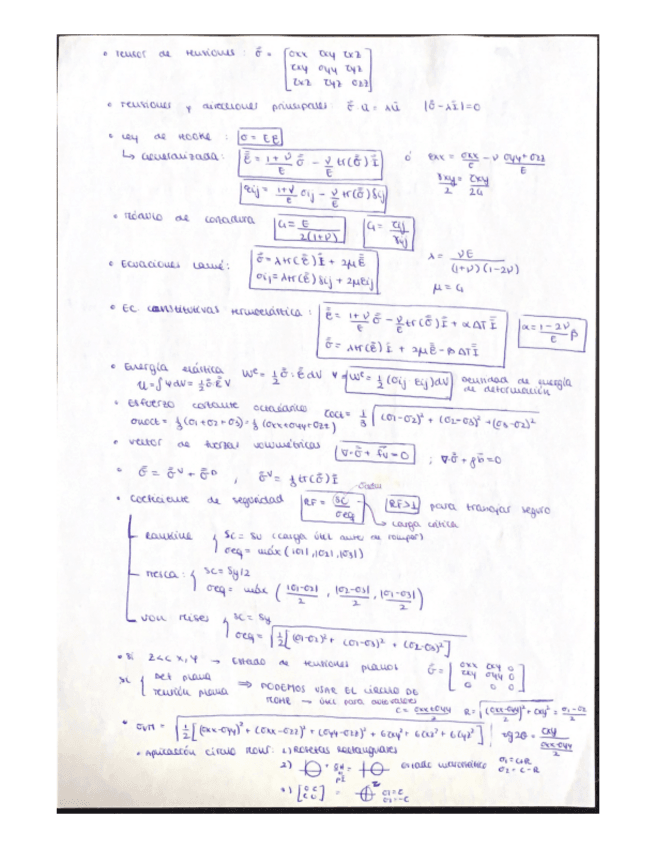 • Tensor de tensiones : σ̿ = [σxx τxy τxz
τxy σyy τyz
τxz τyz σzz]
• Tensiones y direcciones principales σ̿ · ū = λū |σ̿ - λI̿| = 0
• Ley de Hooke : σ = Eε
↳ Generalizada: ε̿ = (1+ν)/E σ̿ - ν/E tr(σ̿) I̿ ó εxx = σxx/E - ν (σyy+σzz)/E
εij = (1+ν)/E σij - ν/E tr(σ̿) δij γxy/2 = τxy/2G
• Módulo de cortadura G = E/(2(1+ν)) G = τij/γij
• Ecuaciones Lamé: σ̿ = λ tr(ε̿) I̿ + 2με̿ λ = νE/((1+ν)(1-2ν))
σij = λ tr(ε̿) δij + 2μεij μ = G
• Ec constitutivas termoelástica : ε̿ = (1+ν)/E σ̿ - ν/E tr(σ̿) I̿ + α ΔT I̿ α = (1-2ν)/E β
σ̿ = λ tr(ε̿) I̿ + 2με̿ - β ΔT I̿
• Energía elástica W^e = 1/2 σ̿ : ε̿ dV W^e = 1/2 (σij εij) dV densidad de energía
de deformación
• Esfuerzo cortante octaédrico τoct = 1/3 √((σ1-σ2)² + (σ2-σ3)² + (σ3-σ2)²
σnoct = 1/3 (σ1+σ2+σ3) = 1/3 (σxx+σyy+σzz)
• Vector de fuerzas volumétricas ∇·σ̿ + f̄v = 0 ;
• σ̿ = σ̿^V + σ̿^D , σ̿^V = 1/3 tr(σ̿) I̿
• Coeficiente de seguridad RF = SC/σeq RF>1 para trabajar seguro
→ carga crítica
Rankine { SC = Su (carga últ antes de romper)
σeq = máx (|σ1|, |σ2|, |σ3|)
Tresca : { SC = Sy/2
σeq = máx ( |σ1-σ2|/2 , |σ2-σ3|/2 , |σ1-σ3|/2 )
Von Mises { SC = Sy
σeq = √(1/2 [(σ1-σ2)² + (σ1-σ3)² + (σ2-σ3)²]
• Si z<< x, y → Estado de tensiones planas σ̿ = [σxx τxy 0
τxy σyy 0
0 0 0]
Si Def plana
Tensión plana ⇒ PODEMOS USAR EL CÍRCULO DE
MOHR →
C = (σxx+σyy)/2
• σVM = √(1/2 [(σxx-σyy)² + (σxx-σzz)² + (σyy-σzz)² + 6τxy² + 6τxz² + 6τyz²]
• Aplicación círculo Mohr: 1) Rosetas rectangulares
2) σ1 = C+R
σ2 = C-R